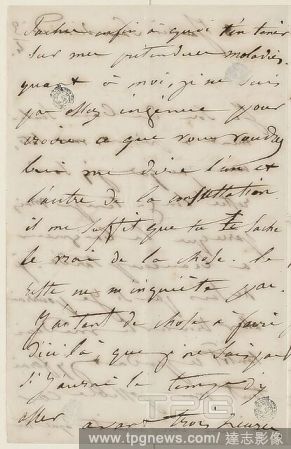 enfin à quoi t'en tenir
sur ma prétendue maladie,
quant à moi, je ne suis
pas assez ingénue pour
croire ce que vous voudrez
bien me dire l'un et
l'autre de la consultation
il me suffit que tu le sache
le vrai de la chose. Le
reste ne m'inquiète pas.
J'ai tant de chose à faire
d'ici là, que je ne sais pas
si j'aurai le temps d'y
aller avant trois heures
TPG
www.tpgnews.com / 達志影像